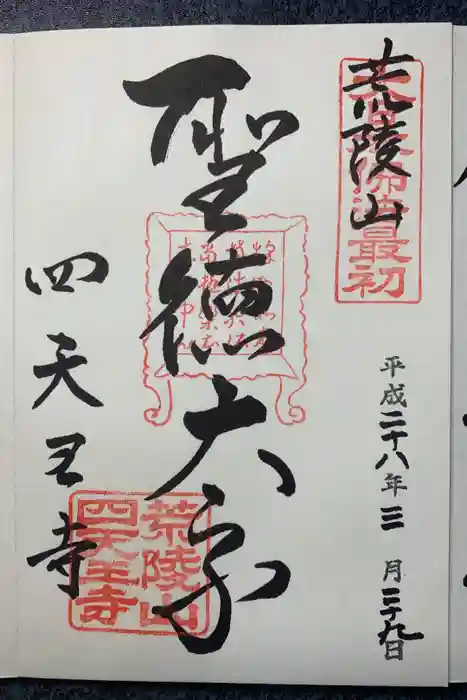 荒陵山
大日本佛法最初
平成二十八年三月二十九日
聖徳大
四天王寺
荒陵山
四天王寺